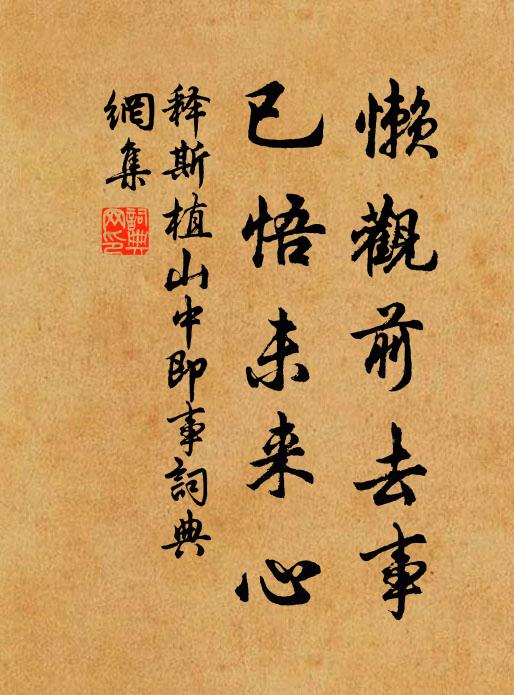 懶觀前去事
已悟未来心
释斯植山中即事詞典
網集
詞典
网印